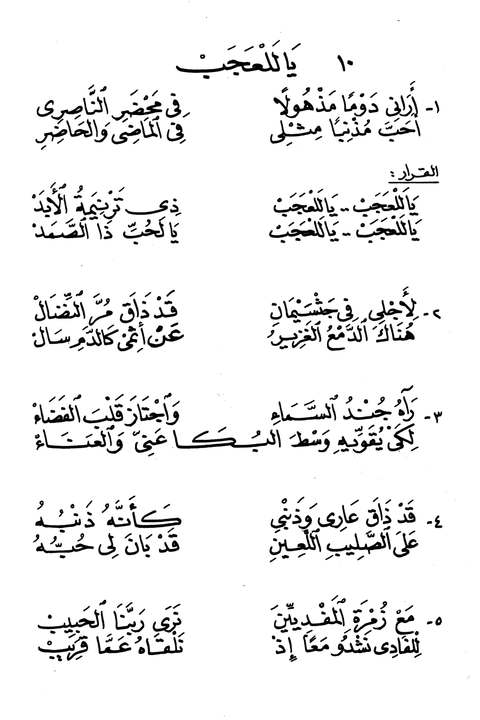 ١٠ يَاللَعْجَبْ
١- أَرَانِي دَوْمًا مَذْهُولًا فِي مَحْضَرِ النَّاصِرِي
أَحَبَّ مُذْنِبًا مِثْلِي فِي المَاضِي وَالحَاضِرِ
القرار:
يَاللَعْجَبْ -- يَاللَعْجَبْ ذِي تَرْنِيمَةُ الأَبَدْ
يَاللَعْجَبْ -- يَاللَعْجَبْ يَا لَحُبِّ ذَا الصَّمَدْ
٢- لِأَجْلِي فِي جَثْسَيْمَانِ قَدْ ذَاقَ مُرَّ النِّضَالْ
هُنَاكَ الدَّمْعُ الغَزِيرُ عَنْ إِثْمِي كَالدَّمِ سَالْ
٣- رَآهُ جُنْدُ السَّمَاءِ وَاجْتَازَ قَلْبَ الفَضَاءْ
لِكَيْ يُقَوِّيهِ وَسْطَ البُكَا عَنِّي وَالعَنَاءْ
٤- قَدْ ذَاقَ عَارِي وَذَنْبِي كَأَنَّهُ ذَنْبُهُ
عَلَى الصَّلِيبِ اللَعِينِ قَدْ بَانَ لِي حُبُّهُ
٥- مَعْ زُمْرَةِ المَفْدِيِّينَ نَرَى رَبَّنَا الحَبِيبْ
لِلْفَادِي نَشْدُو مَعًا إِذْ نَلْقَاهُ عَمَّا قَرِيبْ